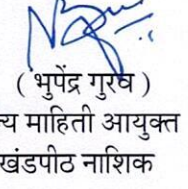 ( भुपेंद्र गुरव )
त्य माहिती आयुक्त
खंडपीठ नाशिक